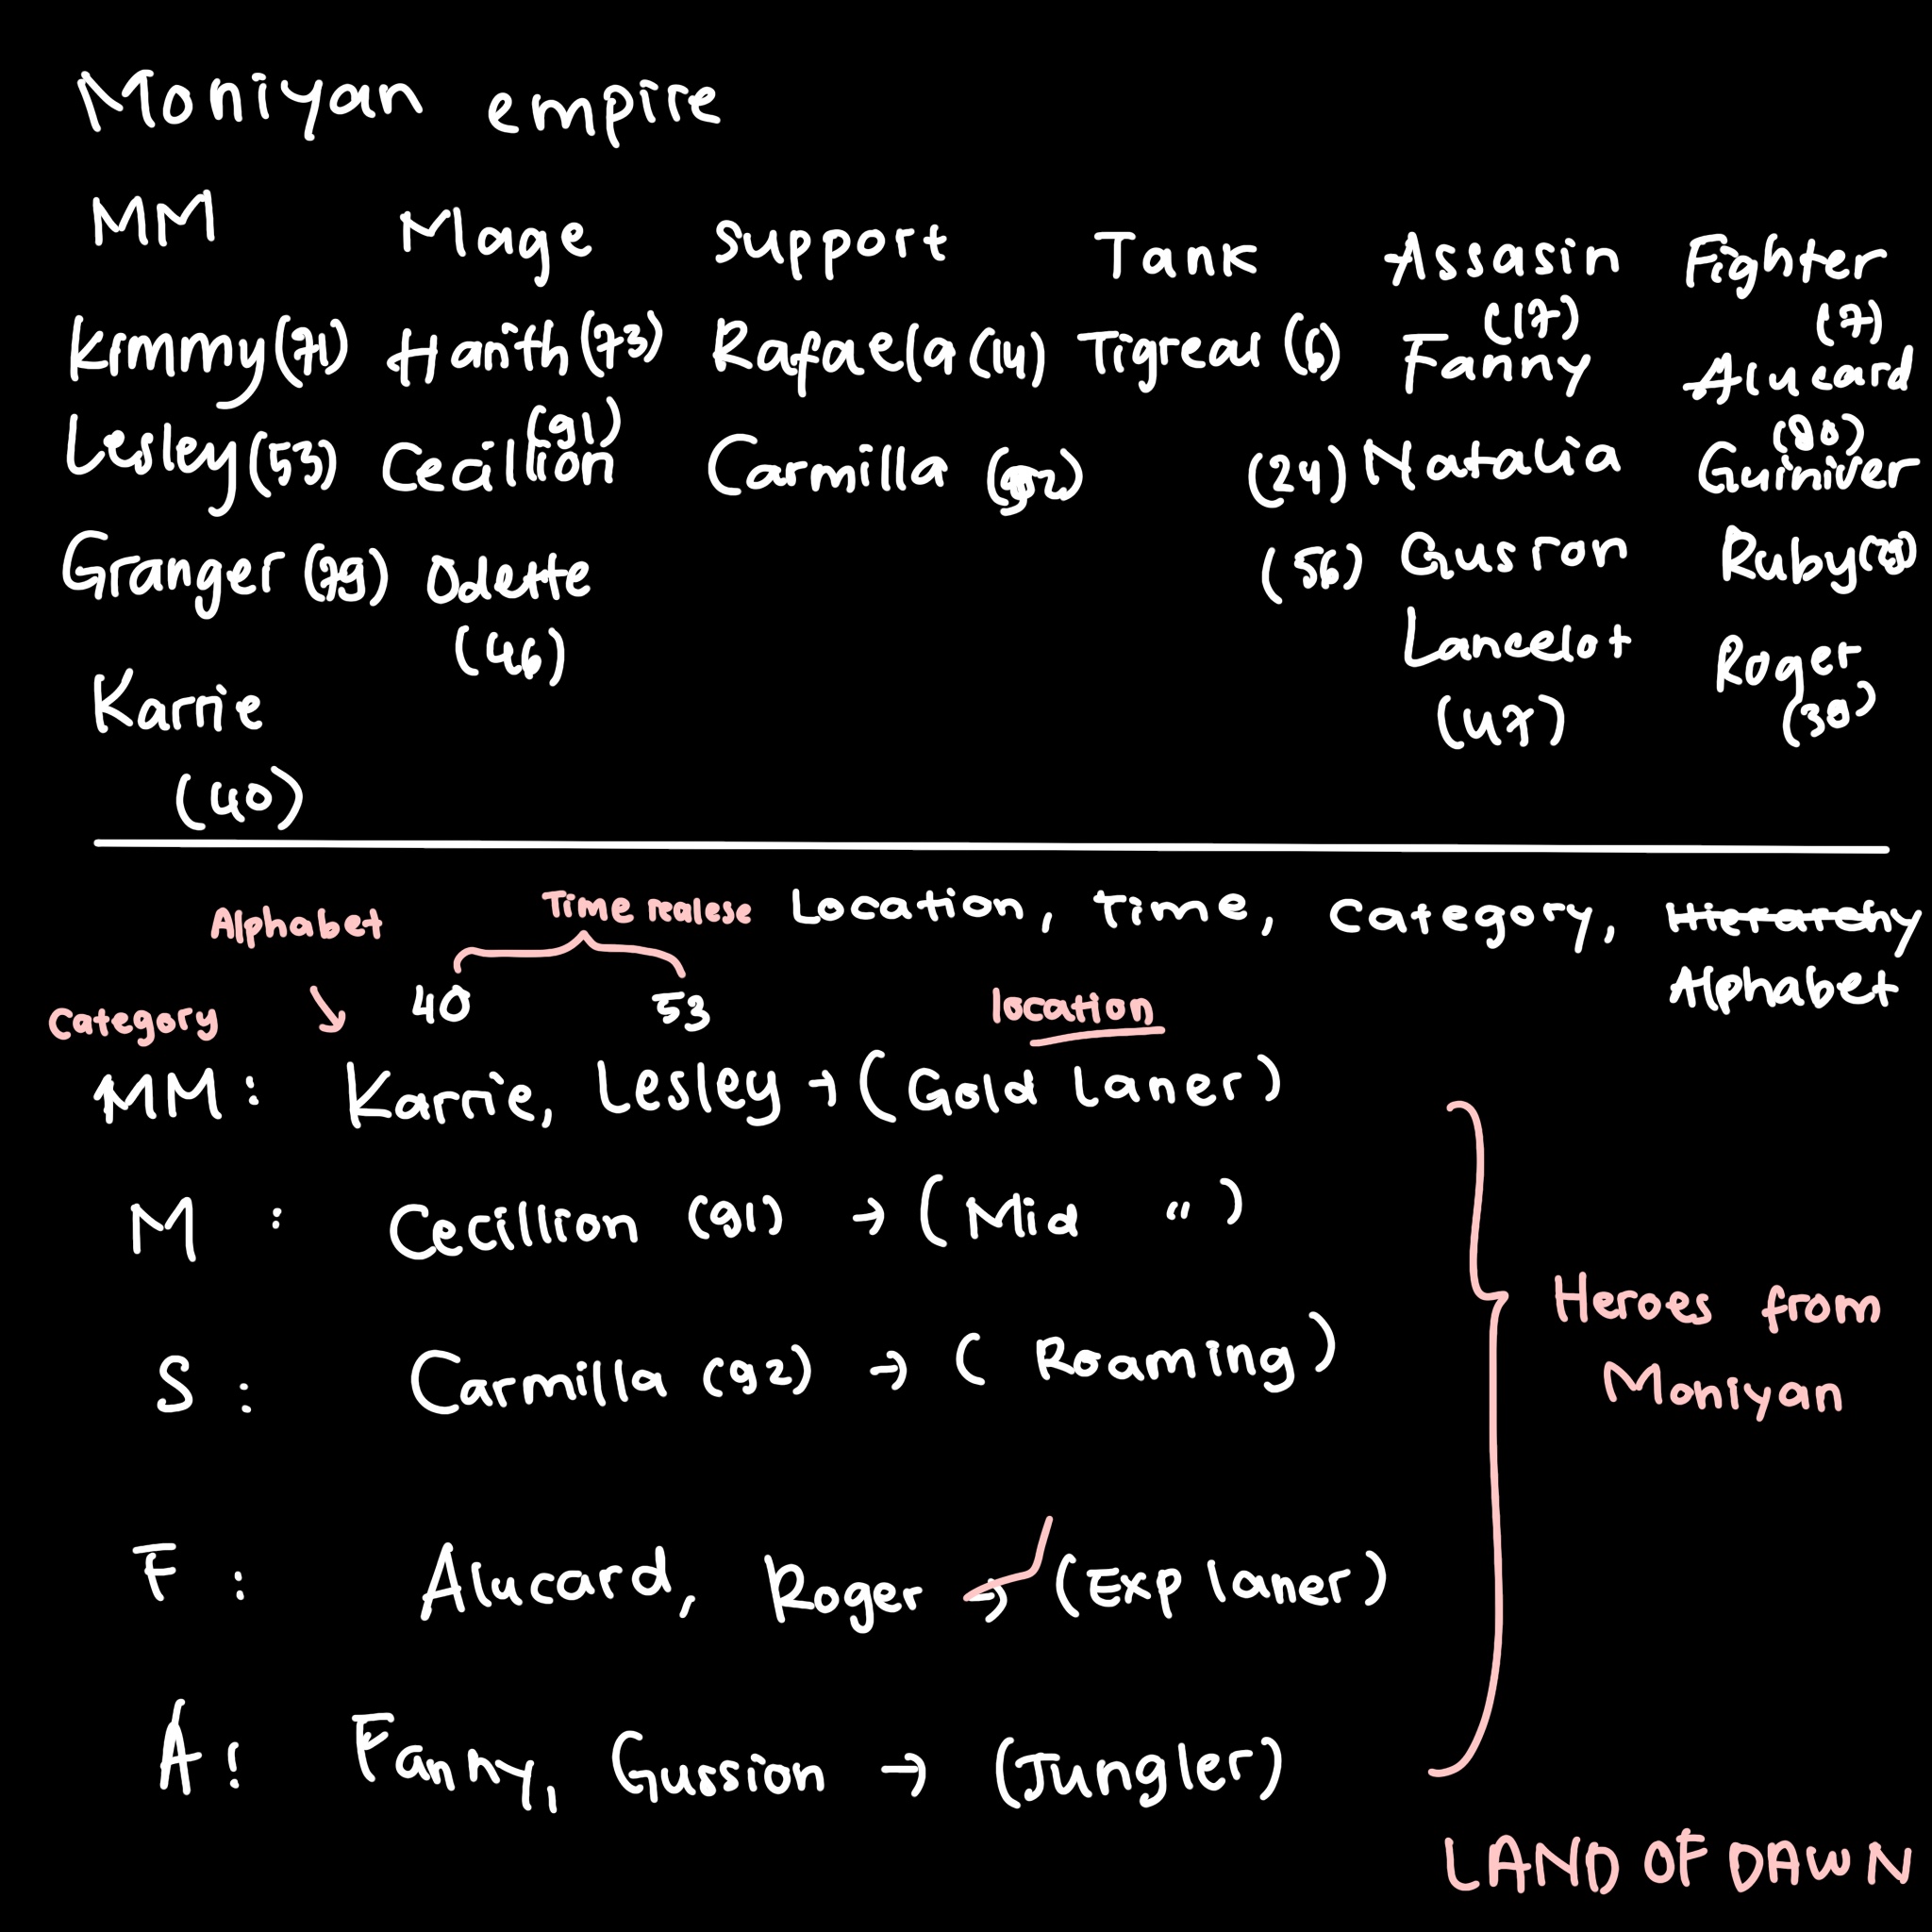 Moniyan empire
MM Mage support Tank Assasin Fighter
(17) (7)
Kimmy (71) Harith (73) Rafaela (14) Tigreal (6) Fanny Alucard
(91) (80)
Lesley (53) Cecillion Carmilla (92) (24) Natalia Guiniver
Granger (79) Odette (56) Gusion Ruby
(46) Lancelot Roger
Karrie (47) (39)
(40)
Alphabet Time realese Location, time, category, Hierarchy
Category 40 53 location Alphabet
MM: Karrie, Lesley → (Gold laner)
M : Cecillion (91) → (Mid " )
Heroes from
S : Carmilla (92) → ( Roaming) Moniyan
F : Alucard, Roger → (Exp laner)
A: Fanny, Gussion → (Jungler)
LAND OF DAWN